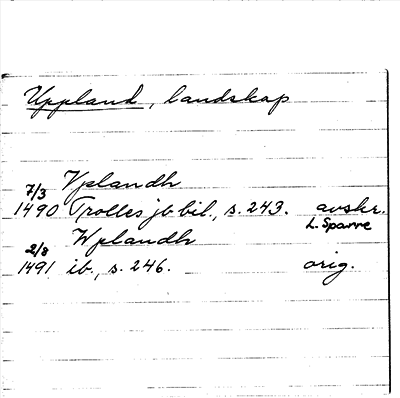 Uppland, landskap
Vplandh
7/3
1490 Trolles jb bil., s. 243. avskr.
L. Sparre
Wplandh
2/8
1491 ib., s. 246. orig.